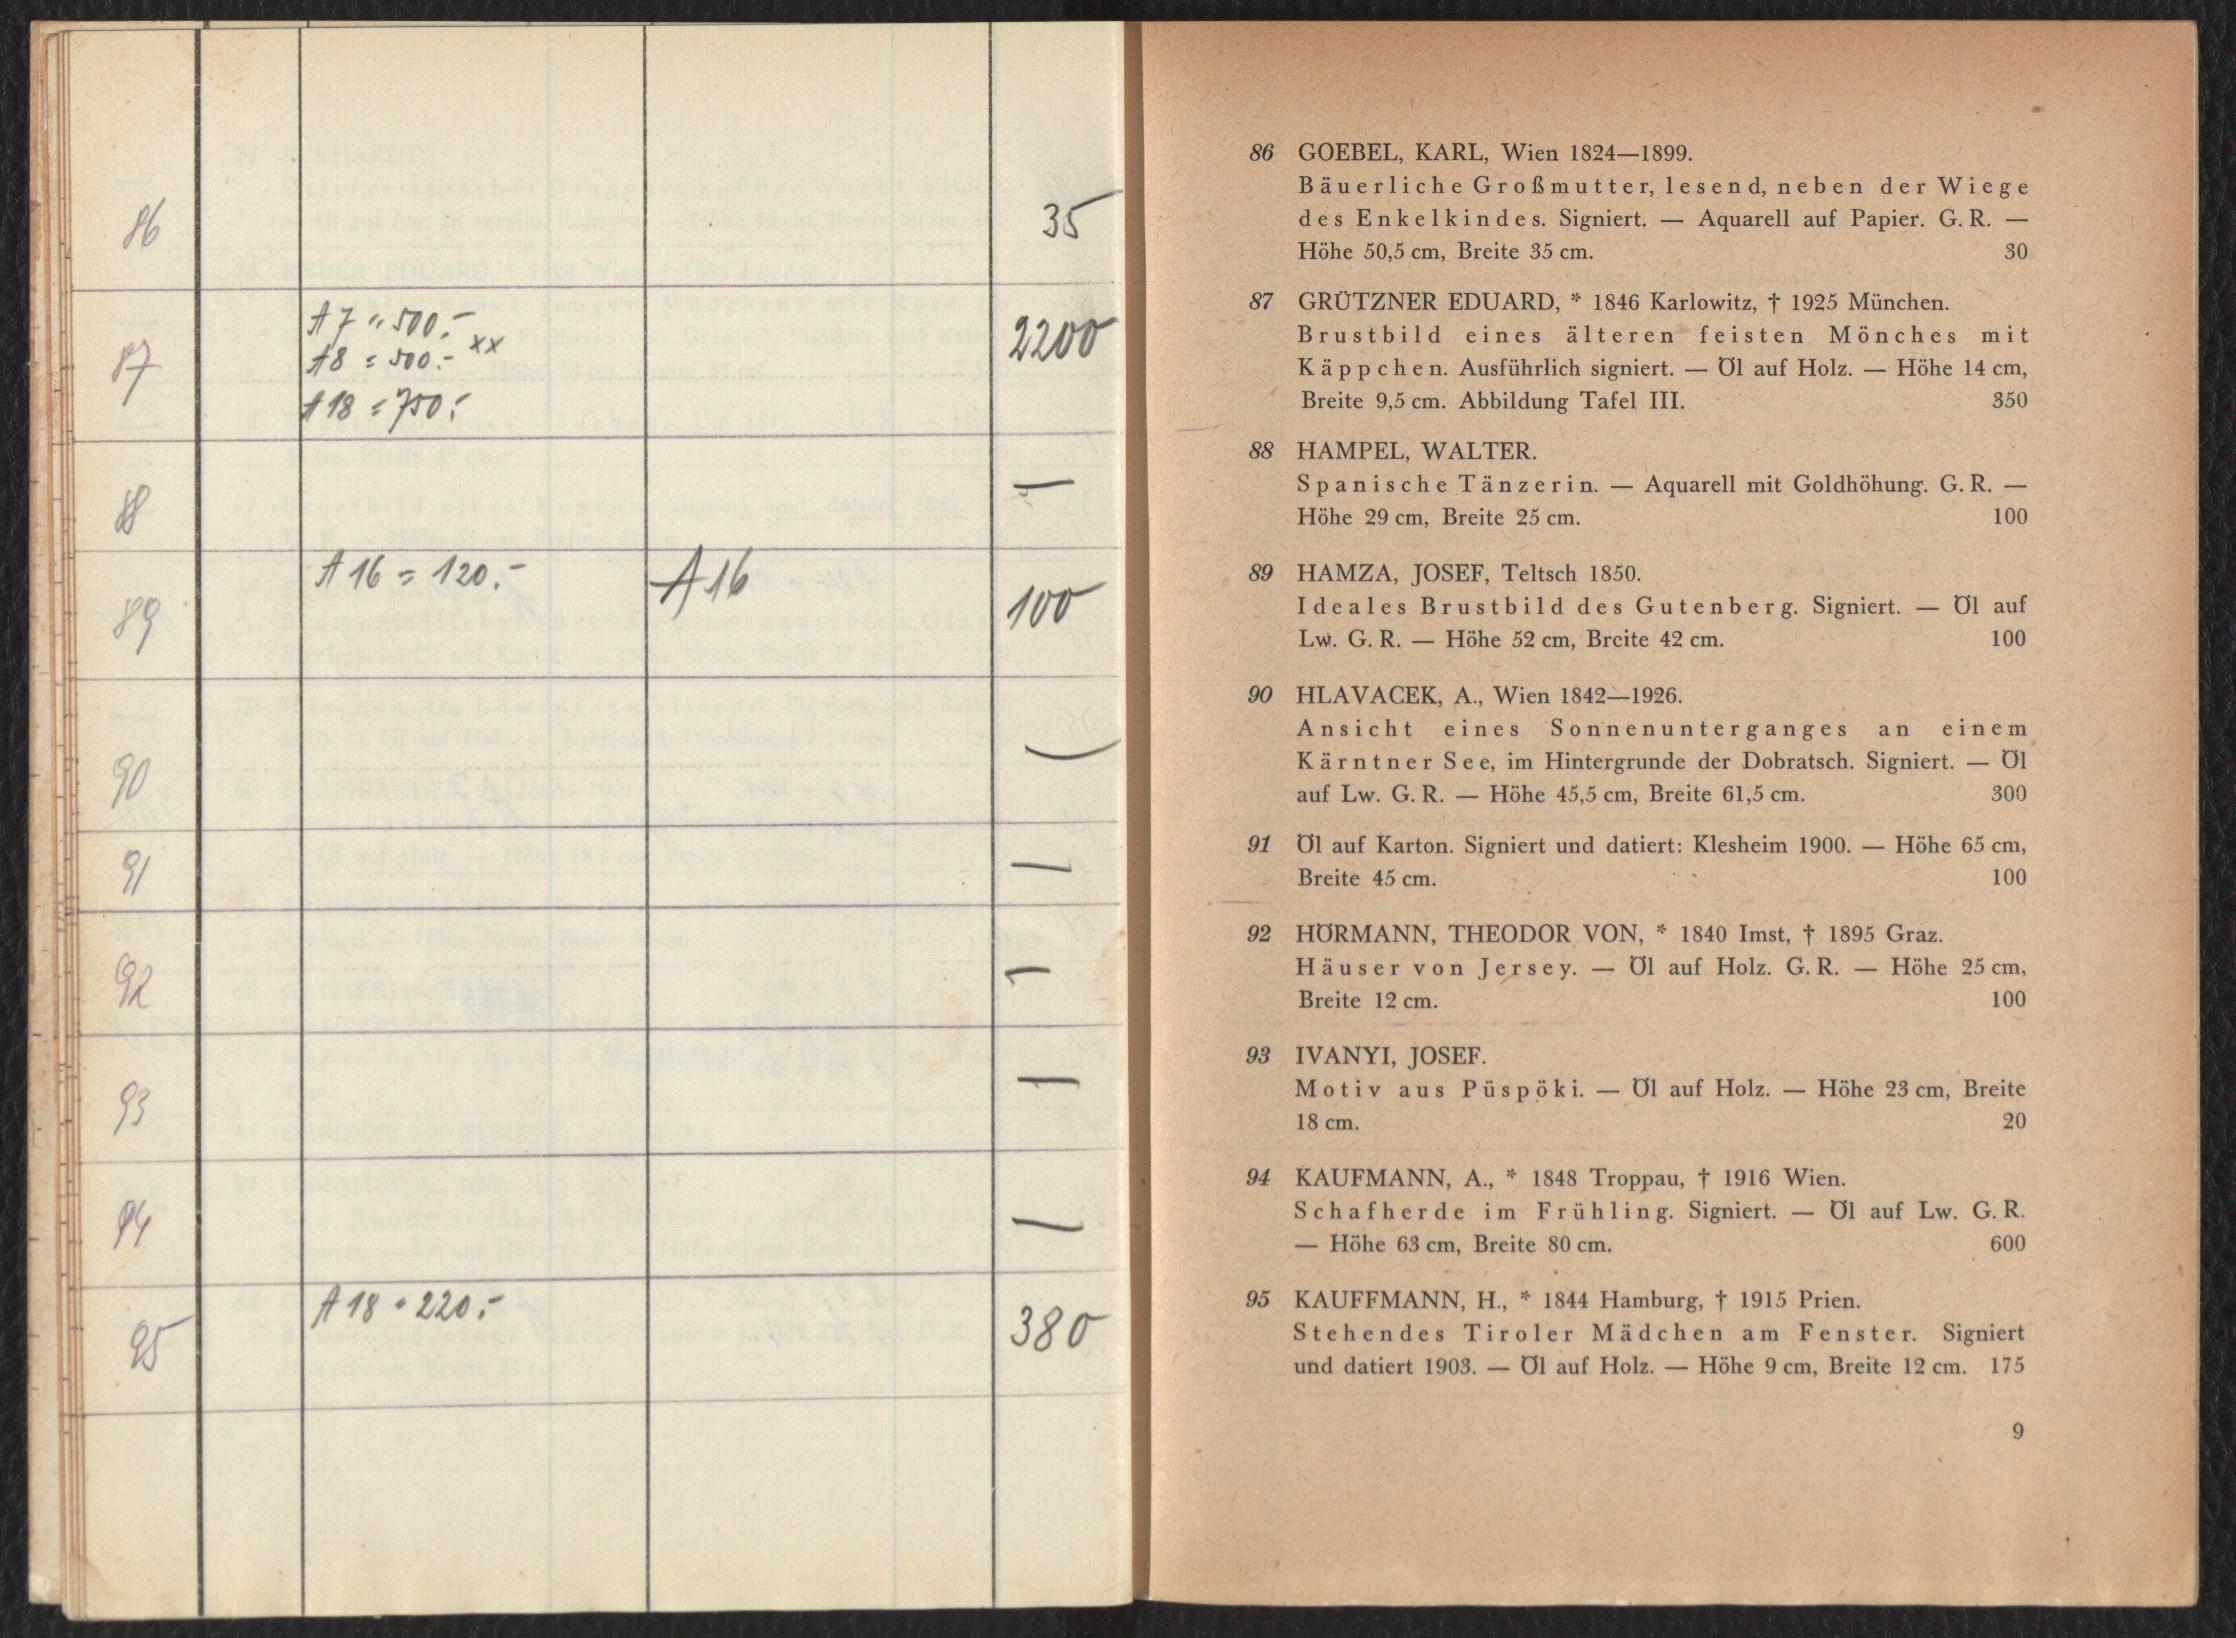 86 35
87 A 7 " 500.- 2200
A8 = 500.- xx
A 18 = 750.-
88 —
89 A 16 = 120.- A 16 100
90 —
91 —
92 —
93 —
94 —
95 A 18 = 220.- 380
86 GOEBEL, KARL, Wien 1824—1899.
Bäuerliche Großmutter, lesend, neben der Wiege
des Enkelkindes. Signiert. — Aquarell auf Papier. G. R. —
Höhe 50,5 cm, Breite 35 cm. 30
87 GRÜTZNER EDUARD, * 1846 Karlowitz, † 1925 München.
Brustbild eines älteren feisten Mönches mit
Käppchen. Ausführlich signiert. — Öl auf Holz. — Höhe 14 cm,
Breite 9,5 cm. Abbildung Tafel III. 350
88 HAMPEL, WALTER.
Spanische Tänzerin. — Aquarell mit Goldhöhung. G. R. —
Höhe 29 cm, Breite 25 cm. 100
89 HAMZA, JOSEF, Teltsch 1850.
Ideales Brustbild des Gutenberg. Signiert. — Öl auf
Lw. G. R. — Höhe 52 cm, Breite 42 cm. 100
90 HLAVACEK, A., Wien 1842—1926.
Ansicht eines Sonnenunterganges an einem
Kärntner See, im Hintergrunde der Dobratsch. Signiert. — Öl
auf Lw. G. R. — Höhe 45,5 cm, Breite 61,5 cm. 300
91 Öl auf Karton. Signiert und datiert: Klesheim 1900. — Höhe 65 cm,
Breite 45 cm. 100
92 HÖRMANN, THEODOR VON, * 1840 Imst, † 1895 Graz.
Häuser von Jersey. — Öl auf Holz. G. R. — Höhe 25 cm,
Breite 12 cm. 100
93 IVANYI, JOSEF.
Motiv aus Püspöki. — Öl auf Holz. — Höhe 23 cm, Breite
18 cm. 20
94 KAUFMANN, A., * 1848 Troppau, † 1916 Wien.
Schafherde im Frühling. Signiert. — Öl auf Lw. G. R.
— Höhe 63 cm, Breite 80 cm. 600
95 KAUFFMANN, H., * 1844 Hamburg, † 1915 Prien.
Stehendes Tiroler Mädchen am Fenster. Signiert
und datiert 1903. — Öl auf Holz. — Höhe 9 cm, Breite 12 cm. 175
9